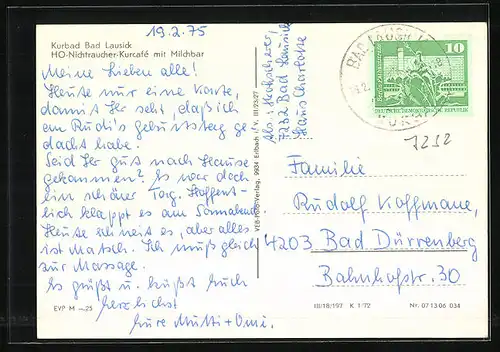 19.2.75
Kurbad Bad Lausick
HO-Nichtraucher-Kurcafé mit Milchbar
Meine Lieben alle!
Heute nur eine Karte,
damit Ihr seht, daß ich
an Rudi's Geburtstag ge-
dacht habe.
Seid Ihr gut nach Hause
gekommen? Es war doch
ein schöner Tag. Hoffent-
lich klappt es am Sonnabend.
Heute schneit es, aber alles
ist Matsch. Ich muß gleich
zur Massage.
Es grüßt u. küßt Euch
herzlichst
Eure Mutti + Omi.
EVP M -,25
Abs.:
7282 Bad Lausick
Haus Charlotte
VEB 9934 Erlbach i. V. III/23/27
BAD LAUSICK
10
DEUTSCHE DEMOKRATISCHE REPUBLIK
7282
Familie
Rudolf Koffmane,
4203 Bad Dürrenberg
Bahnhofstr. 30
III/18/197 K 1/72
Nr. 07 13 06 034